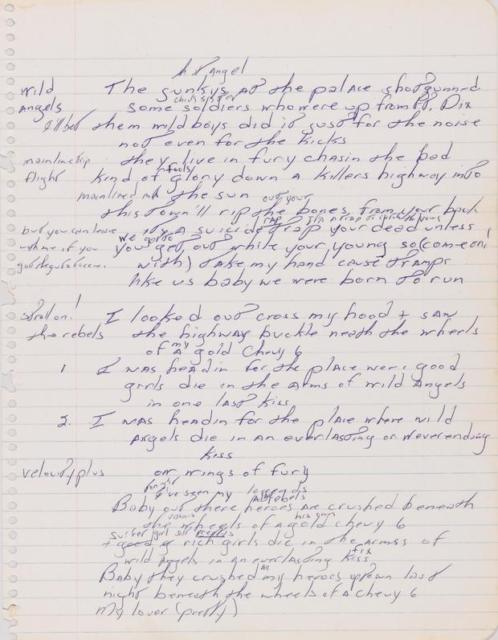 Angel
wild The junkys at the palace shotgunned
Angels some soldiers who were up from Ft. Dix
them wild boys did it just for the noise
not even for the kicks
they live in fury chasin the bad
flight kind of glory down a killers highway into
the sun out your
this town'll rip the bones from your back
but you can leave its a suicide trap your dead unless
we gotta
with me if you you get out while your young so (come on
with) take my hand cause tramps
like us baby we were born to run
I looked out cross my hood + saw
the rebels the highway buckle neath the wheels
my
of a gold Chevy 6
1 I was headin for the place were good
girls die in the arms of wild Angels
in one last kiss
2. I was headin for the place where wild
angels die in an everlasting or neverending
kiss
plus on wings of fury
I've seen my
Baby out there heroes are crushed beneath
the wheels of a gold chevy 6
rich girls die in the arms of
wild angels in an everlasting kiss
Baby they crushed my heroes uptown last
night beneath the wheels of a chevy 6
my lover (pretty)